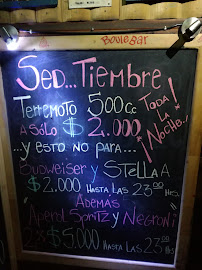 Boulebar
Sed...Tiembre
Terremoto 500cc
A sólo $2.000
Toda la ¡Noche..!
...y esto no para...
Budweiser y Stella A
$2.000 Hasta las 23:00 Hrs.
Además
"Aperol Spritz y Negroni"
$5.000 Hasta las 23:00 Hrs